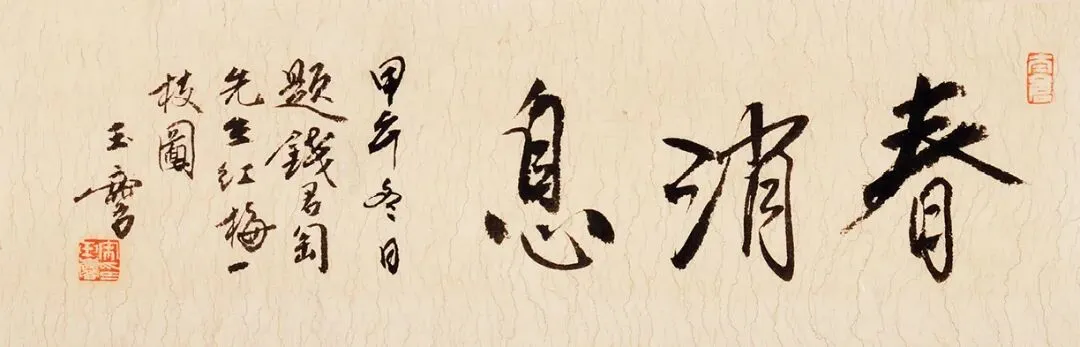 春消息
甲午冬日
題錢君匋
先生紅梅一
枝圖
玉麐